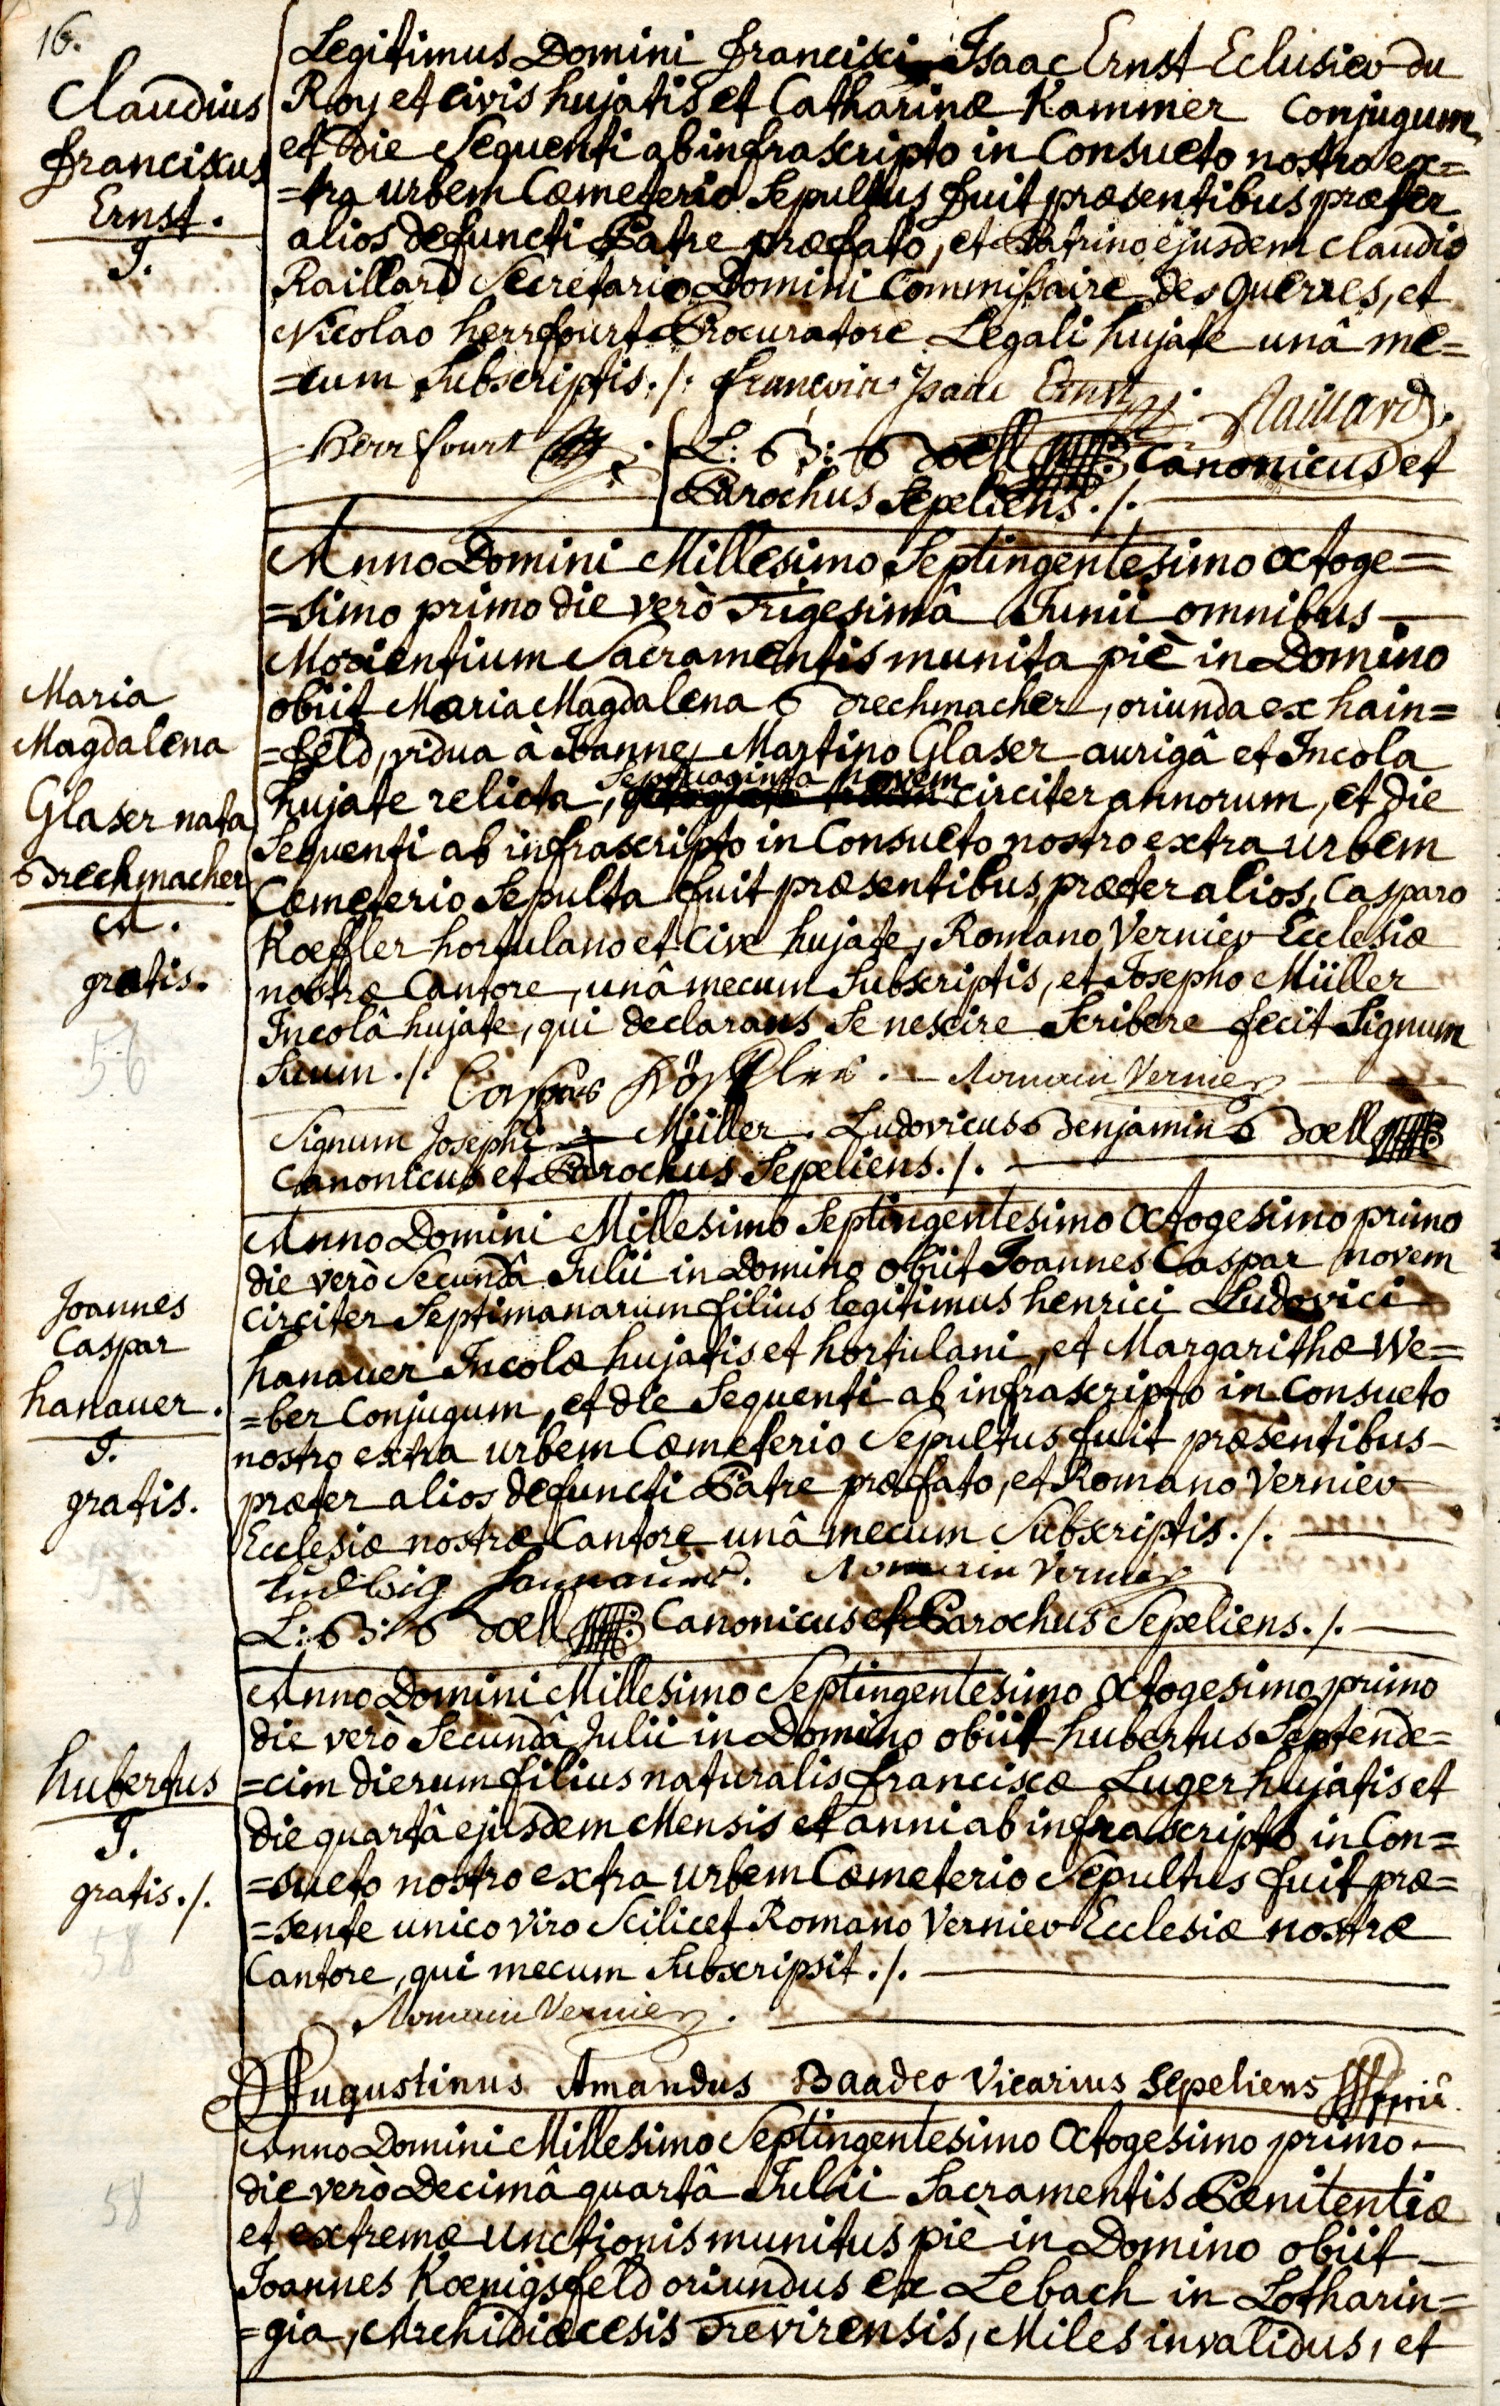 16.
Claudius
Franciscus
Ernst.
J.
Legitimus Domini Francisci Isaac Ernst Eclusier du
Roy et civis hujatis et Catharinæ Kammer Conjugum
et die Sequenti ab infrascripto in Consueto nostro ex=
=tra urbem Cœmeterio Sepultus fuit præsentibus præter
alios defuncti Patre præfato, et Patrino ejusdem Claudio
Raillard Secretario Domini Commissaire des Guerres, et
Nicolao herrfourt Procuratore Legali hujate unâ me=
=cum Subscriptis ./. françois Isaac Ernst Raillard.
Herrfourt L: B: Boell Canonicus et
Parochus Sepeliens ./.
Maria
Magdalena
Glaser nata
Brechmacher
A.
gratis.
56
Anno Domini Millesimo Septingentesimo octoge=
=simo primo die verò Trigesimâ Junii omnibus
Morientium Sacramentis munita piè in Domino
obiit Maria Magdalena Brechmacher, oriunda ex hain=
=feld, vidua à Joanne Martino Glaser aurigâ et Incola
hujate relicta, Septuaginta novem circiter annorum, et die
Sequenti ab infrascripto in Consueto nostro extra urbem
Cœmeterio Sepulta fuit præsentibus, præter alios, Casparo
Kœffler hortulano et Cive hujate, Romano Vernier Ecclesiæ
nostræ Cantore, unâ mecum Subscriptis, et Josepho Müller
Incolâ hujate, qui declarans Se nescire Scribere fecit Signum
Suum ./. Caspar Köffler. Romain Vernier
Signum Josephi + Müller. Ludovicus Benjamin Boell
Canonicus et Parochus Sepeliens ./.
Joannes
Caspar
hanauer.
J.
gratis.
Anno Domini Millesimo Septingentesimo Octogesimo primo
die verò Secundâ Julii in Domino obiit Joannes Caspar novem
circiter Septimanarum filius legitimus henrici Ludovici
hanauer Incolæ hujatis et hortulani, et Margarithæ We=
=ber Conjugum, et die Sequenti ab infrascripto in Consueto
nostro extra urbem Cœmeterio Sepultus fuit præsentibus
præter alios defuncti Patre præfato, et Romano Vernier
Ecclesiæ nostræ Cantore unâ mecum Subscriptis ./.
Ludwig Hannauer. Romain Vernier
L: B: Boell Canonicus et Parochus Sepeliens ./.
hubertus
J.
gratis ./.
58
Anno Domini Millesimo Septingentesimo Octogesimo primo
die verò Secundâ Julii in Domino obiit hubertus Septende=
=cim dierum filius naturalis Franciscæ Luger hujatis et
die quartâ ejusdem Mensis et anni ab infrascripto in Con=
=sueto nostro extra urbem Cœmeterio Sepultus fuit præ=
=sente unico viro Scilicet Romano Vernier Ecclesiæ nostræ
Cantore, qui mecum Subscripsit ./.
Romain Vernier.
Augustinus Amandus Baader Vicarius sepeliens
58
Anno Domini Millesimo Septingentesimo Octogesimo primo
die verò Decimâ quartâ Julii Sacramentis Pœnitentiæ
et extremæ unctionis munitus piè in Domino obiit
Joannes Kœnigsfeld oriundus ex Lebach in Lotharin=
=gia, Archidiœcesis Trevirensis, Miles invalidus, et